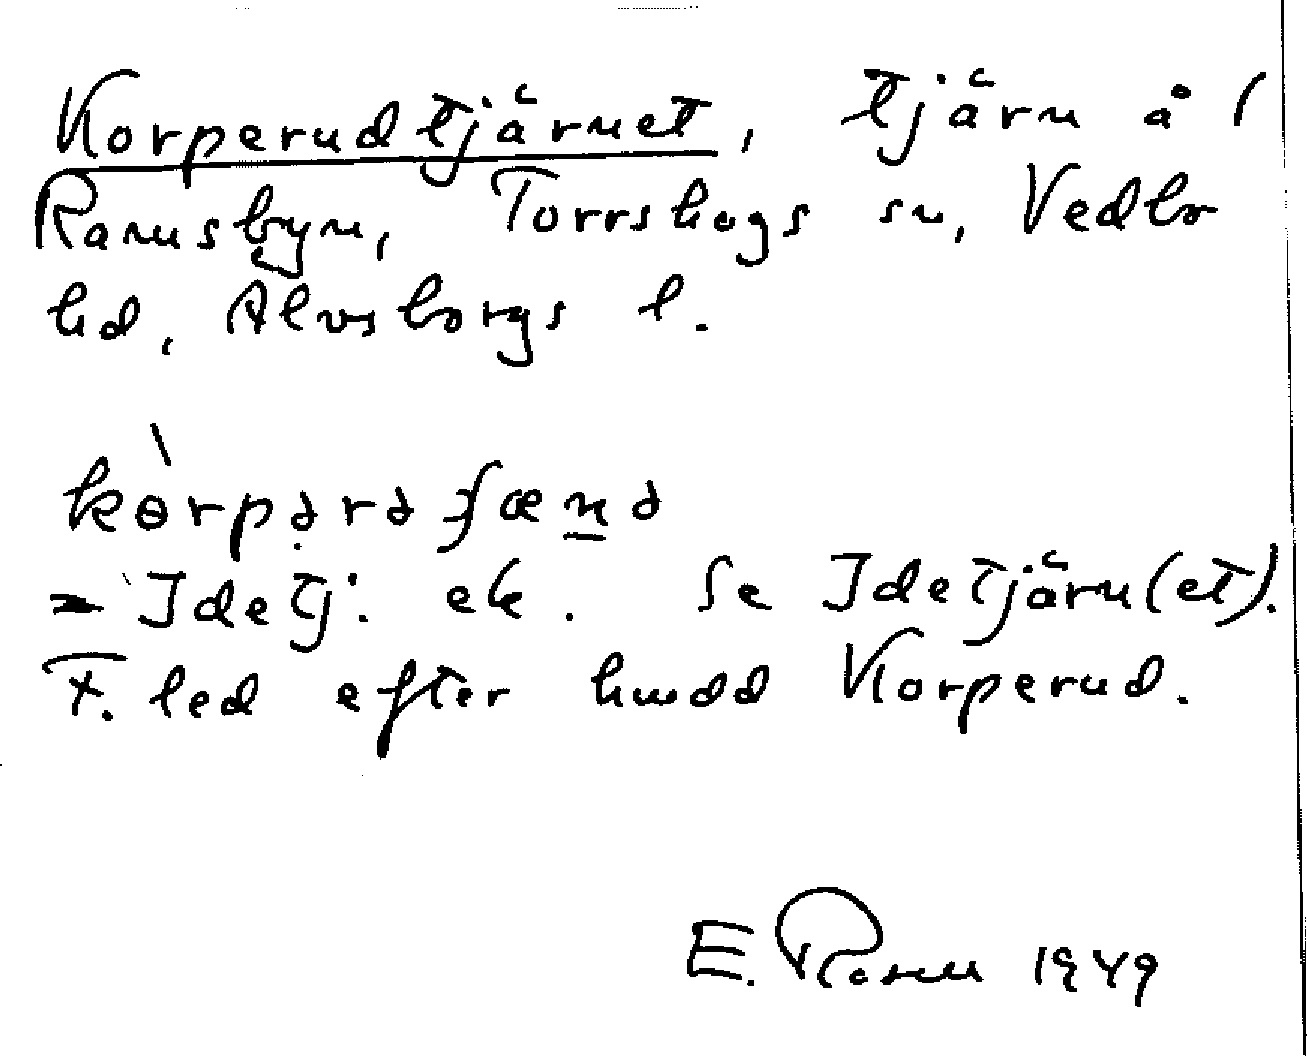 Korperudtjärnet, tjärn å (
Ramsbyn, Torrskogs sn, Vedbo
hd, Älvsborgs l.
= Idetj. ek. Se Idetjärn(et).
F. led efter hmdd Korperud.
E. Rosell 1949